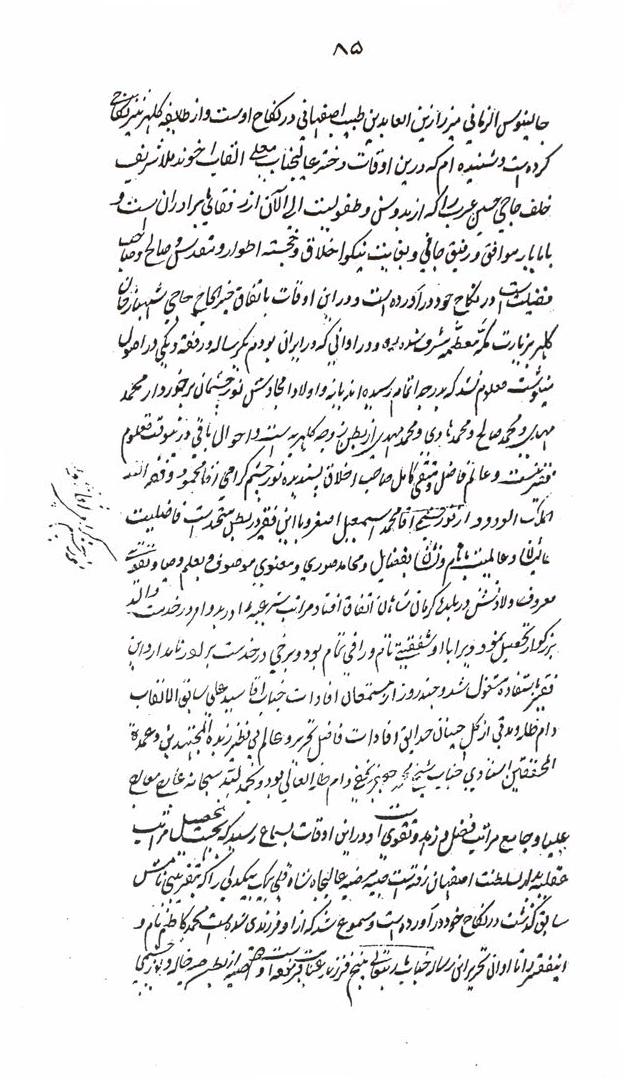 ۸۵
جالینوس الزمانی میرزا زین العابدین طبیب اصفهانی در نکاح اوست و از طایفه کلهر نیز نکاحی
کرده است و شنیده ام که درین اوقات دختر عالیجناب معلی القاب اخوند ملا شریف
خلف حاجی حسین عرب را که از بدو سن و طفولیت الی الآن از رفقای برادران است و
باما یار موافق و رفیق صافی و بغایت نیکو اخلاق و خجسته اطوار و متقدس و صالح و صاحب
فضیلت است در نکاح خود در آورده است و در این اوقات باتفاق خیر الحاج حاجی شهبازخان
کلهر بزیارت مکه معظمه مشرف شده بود و در اوانی که در ایران بودم یکرساله در فقه و یکی در اصول
مینوشت معلوم نشد که بدرجه اتمام رسیده اند یا نه و اولاد امجادش نور چشمان برخوردار محمد
مهدی و محمد صالح و محمد هادی و محمد مهدی از بطن زوجه کلهریه است و احوال باقی در نبوقت معلوم
فقیر نیست و عالم فاضل و متقی کامل صاحب اخلاق پسندیده نور چشم گرامی اقا محمود وفقه الله
الملک الودود از نور چشم اقا محمد اسمعیل اصغر و با این فقیر در بطن متحد است فاضلیت
عالیشان و عالمیست بفضایل و محامد صوری و معنوی موصوف و بعلم و حیا و تقوی
معروف ولادتش در بلده کرمانشاهان اتفاق افتاد مراتب شرعیه را در بدو امر در خدمت والد
بزرگوار تحصیل نمود ویرا با او شفقتی تام و رافتی تمام بود و برخی در خدمت برادر نامدار و این
فقیر باستفاده مشغول شد و چند روز از مستمعان افادات جناب اقا سید علی سابق الالقاب
دام ظله و مدتی از گل چینان حدایق افادات فاضل نحریر و عالم بی نظیر زبدة المجتهدین و عمدة
المحققین استادی جناب شیخ محمد دام ظله العالی بود و بحمد الله سبحانه عارج معارج
علیا و جامع مراتب فضل و زهد و تقوی است و در این اوقات بسماع رسید که بجهت تحصیل مراتب
عقلیه بدار السلطنت اصفهان رفته است صبیه مرضیه عالیجاه شاه قلی بیک بیکدلی را که بتقریبی نامش
سابق گذشت در نکاح خود در آورده است و مسموع شد که از او فرزندی شده است محمد کاظم نام و
اینفقیر را تا اوان تحریر این رساله جناب رب متعالی پنج فرزند عنایت فرموده